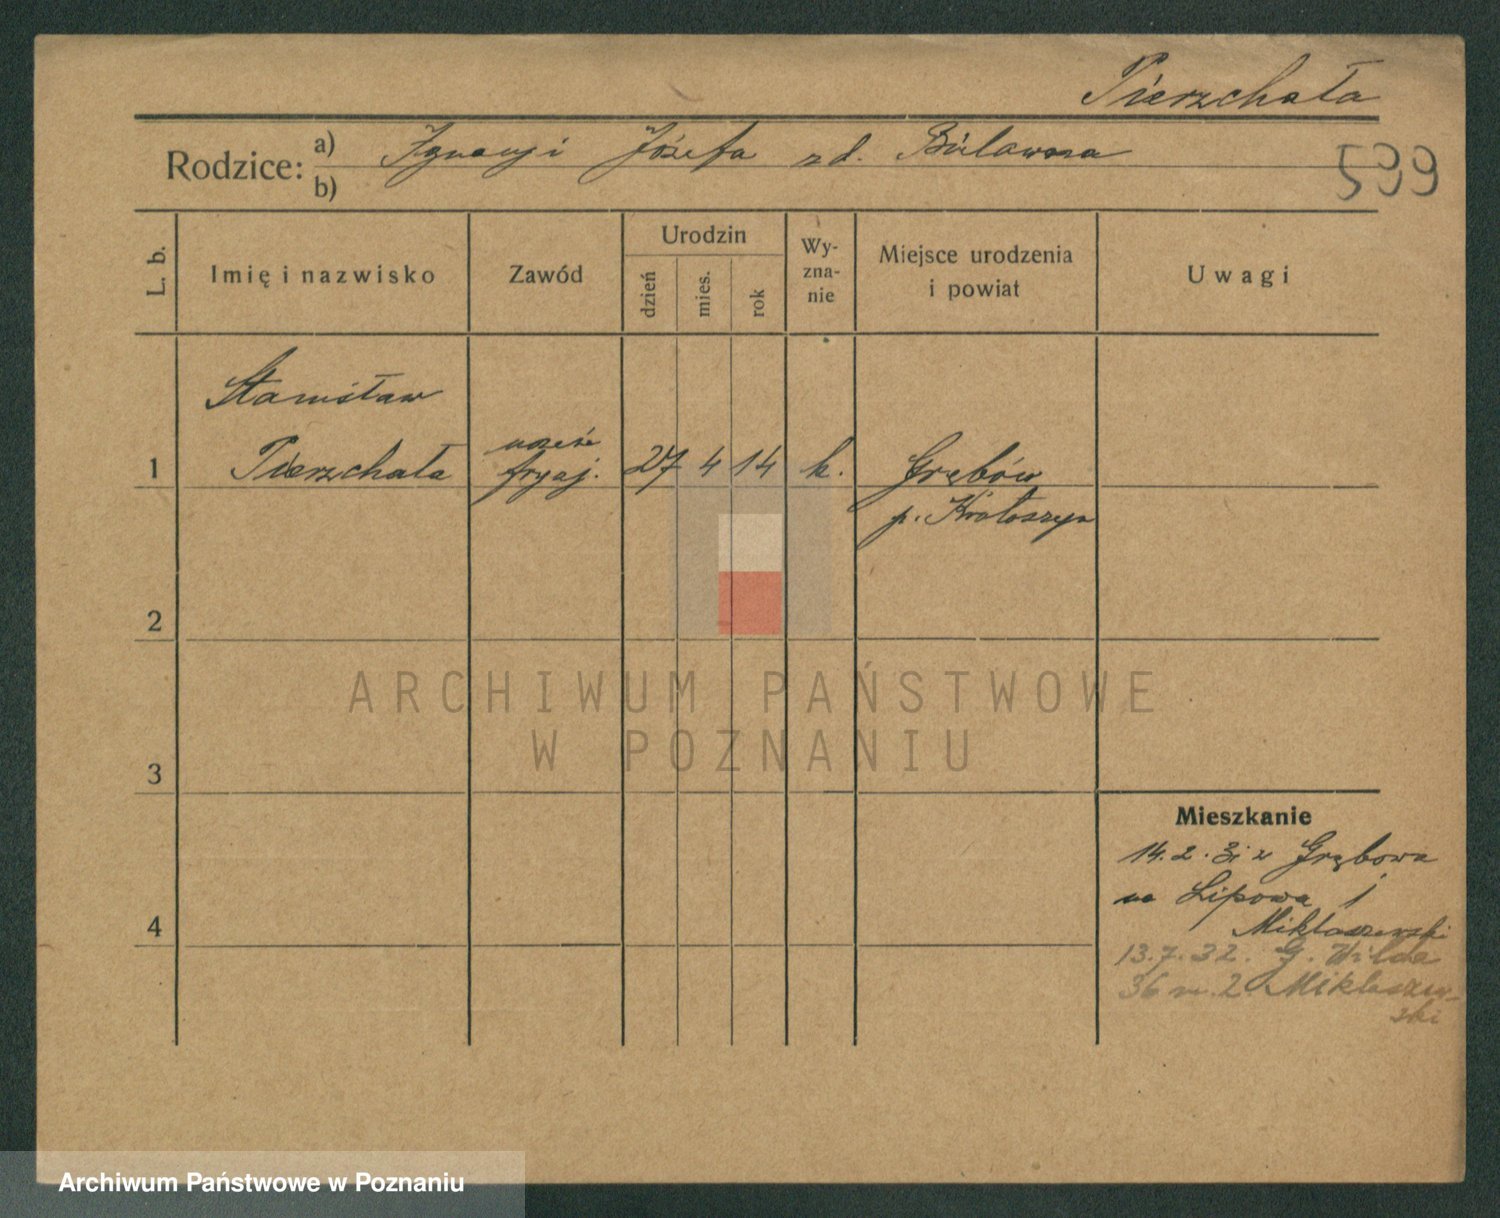 Pierzchała
Rodzice: a) Ignacy i Józefa zd. Buławska
b)
599
L. b.
Imię i nazwisko
Zawód
Urodzin
dzień
mies.
rok
Wy-
zna-
nie
Miejsce urodzenia
i powiat
Uwagi
Stanisław
1 Pierzchała uczeń fryzj. 27 4 14 k. Grębów
p. Krotoszyn
2
ARCHIWUM PAŃSTWOWE
W POZNANIU
3
Mieszkanie
14.2.31 z Grębowa
na Lipowa 1
Mikłaszewski
4
13.7.32. G. Wilda
36 m. 2 Mikłaszew-
ski
Archiwum Państwowe w Poznaniu